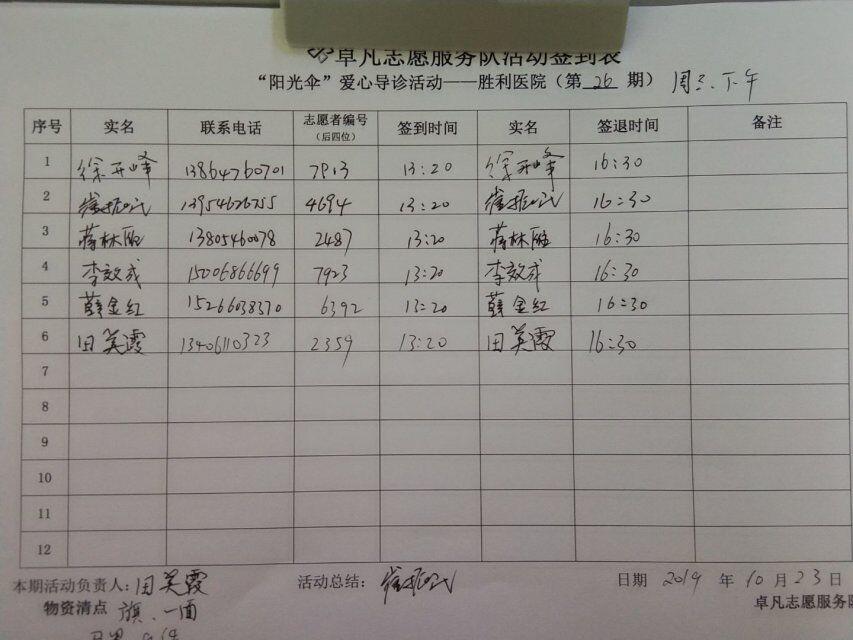 卓凡志愿服务队活动签到表
“阳光伞”爱心导诊活动——胜利医院（第 26 期） 周三.下午
序号 实名 联系电话 志愿者编号（后四位） 签到时间 实名 签退时间 备注
1 徐开峰 13864760701 7913 13:20 徐开峰 16:30
2 崔振武 13954626755 4694 13:20 崔振武 16:30
3 蒋林 13805460078 2487 13:20 蒋林 16:30
4 李效成 15006866699 7923 13:20 李效成 16:30
5 薛金红 15266038370 6392 13:20 薛金红 16:30
6 田英霞 13406110323 2359 13:20 田英霞 16:30
7
8
9
10
11
12
本期活动负责人：田英霞 活动总结：崔振武 日期 2019 年 10 月 23 日
物资清点 旗、一面 卓凡志愿服务